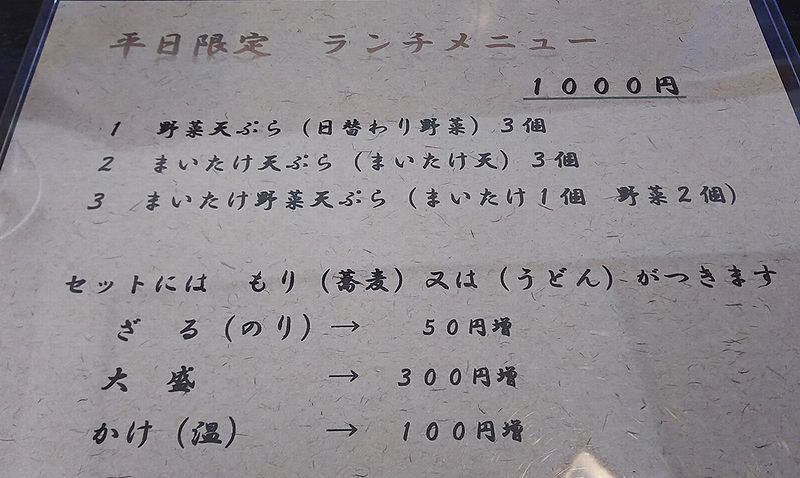 平日限定　ランチメニュー
１０００円
1　野菜天ぷら（日替わり野菜）３個
2　まいたけ天ぷら（まいたけ天）３個
3　まいたけ野菜天ぷら（まいたけ１個　野菜２個）
セットには　もり（蕎麦）又は（うどん）がつきます
ざ　る（のり）→　５０円増
大　盛　→　３００円増
かけ（温）　→　１００円増